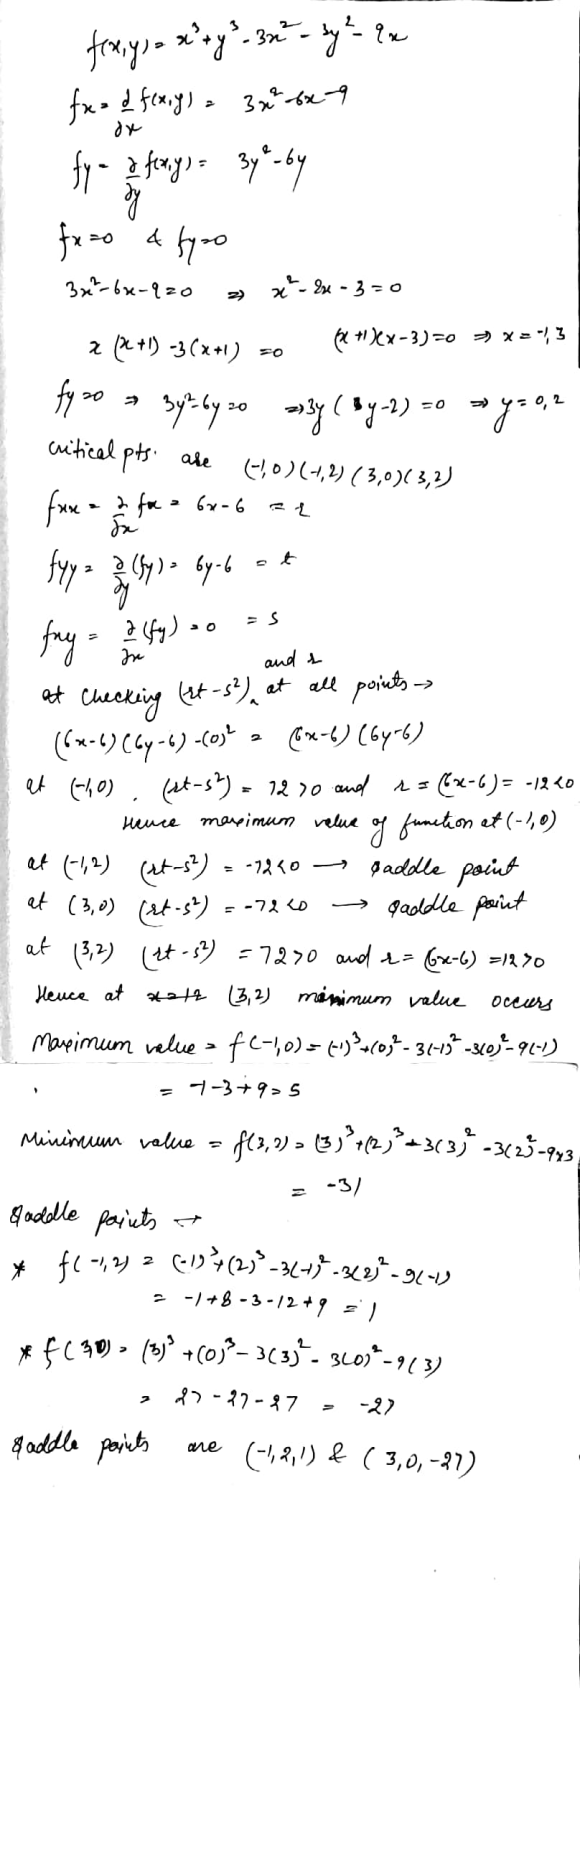 f(x,y) = x³+y³-3x²-3y²-9x
fx = ∂/∂x f(x,y) = 3x²-6x-9
fy = ∂/∂y f(x,y) = 3y²-6y
fx=0 & fy=0
3x²-6x-9=0 ⇒ x²-2x-3=0
x(x+1)-3(x+1)=0 (x+1)(x-3)=0 ⇒ x=-1,3
fy=0 ⇒ 3y²-6y=0 ⇒3y(y-2)=0 ⇒ y=0,2
critical pts. are (-1,0)(-1,2)(3,0)(3,2)
fxx = ∂/∂x fx = 6x-6 = r
fyy = ∂/∂y (fy) = 6y-6 = t
fxy = ∂/∂x (fy) = 0 = s
at checking (rt-s²) and r at all points →
(6x-6)(6y-6)-(0)² = (6x-6)(6y-6)
at (-1,0). (rt-s²) = 72>0 and r=(6x-6)=-12<0
Hence maximum value of function at (-1,0)
at (-1,2) (rt-s²) = -72<0 → saddle point
at (3,0) (rt-s²) = -72<0 → saddle point
at (3,2) (rt-s²) = 72>0 and r=(6x-6)=12>0
Hence at (3,2) minimum value occurs
Maximum value = f(-1,0) = (-1)³+(0)²-3(-1)²-3(0)²-9(-1)
= -1-3+9=5
Minimum value = f(3,2) = (3)³+(2)³-3(3)²-3(2)²-9×3
= -31
Saddle points →
* f(-1,2) = (-1)³+(2)³-3(-1)²-3(2)²-9(-1)
= -1+8-3-12+9 = 1
* f(3,0) = (3)³+(0)³-3(3)²-3(0)²-9(3)
= 27-27-27 = -27
Saddle points are (-1,2,1) & (3,0,-27)